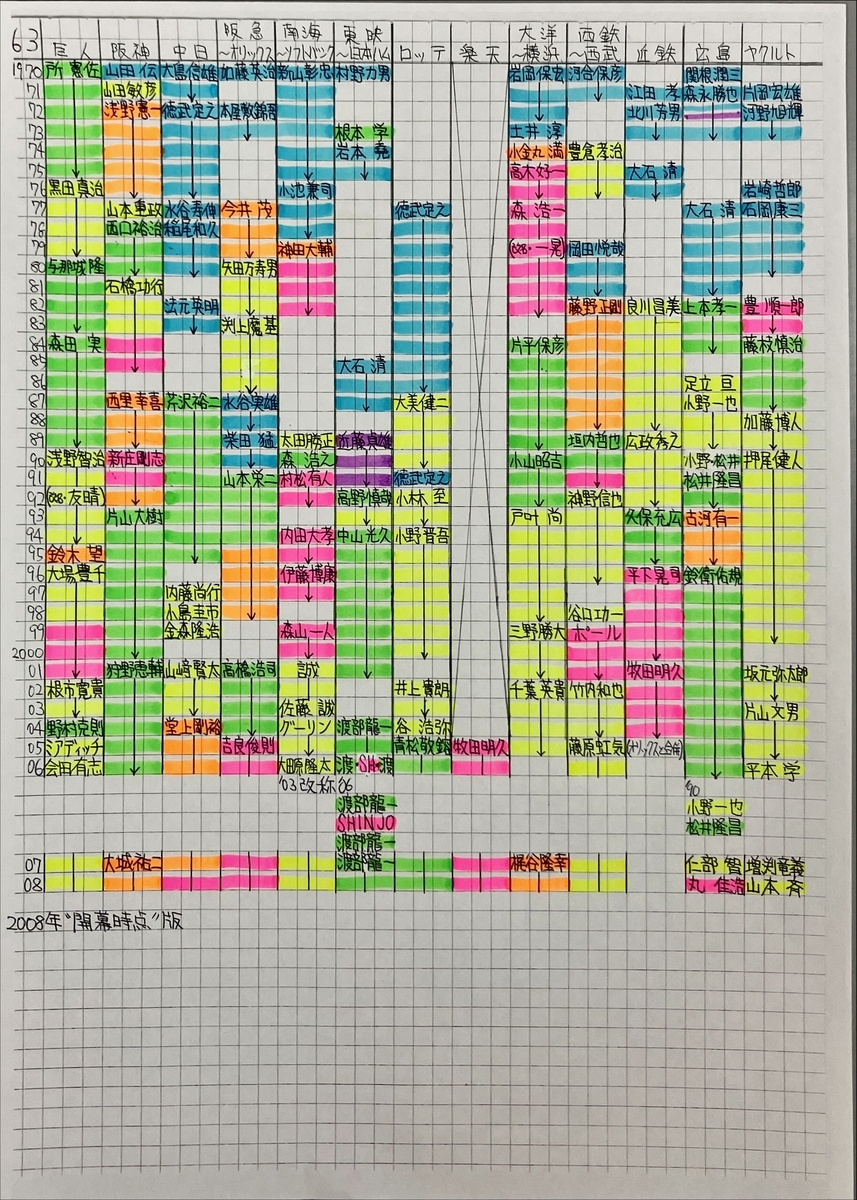 63 巨人 阪神 中日 阪急〜オリックス 南海〜ソフトバンク 東映〜日本ハム ロッテ 楽天 大洋〜横浜 西鉄〜西武 近鉄 広島 ヤクルト
1970 所憲佐 山田伝 大島信雄 加藤英治 新山彰忠 村野力男 岩岡保宏 河谷保彦 関根潤三
71 山田敏彦 江田孝 森永勝也 片岡宏雄
72 浅野憲一 徳武定之 本屋敷錦吾 北川芳男 河野旭輝
73 根本学 土井淳
74 岩本堯 小金丸満 豊倉孝治
75 高木好一 大石清
76 黒田真治 小池兼司 岩崎哲郎
77 山本重政 水谷寿伸 今井茂 徳武定之 森浩一 大石清 石岡康三
78 西口裕治 稲尾和久
79 神田大輔 (改名・一晃) 岡田悦哉
80 与那城隆 矢田万寿男
81 石橋功行
82 法元英明 藤野正剛 良川昌美 上本孝一 豊順一郎
83 渕上魔基
84 森田実 片平保彦 藤枝慎治
85 大石清
86 足立亘
87 西里幸喜 芹沢裕二 水谷実雄 大美健二 小野一也
88 加藤博人
89 柴田猛 太田勝正 近藤貞雄 垣内哲也 広政秀之
90 浅野智治 新庄剛志 森浩之 小山昭吉 小野・松井 押尾健人
91 山本栄二 村松有人 徳武定之 松井隆昌
92 (改名・友晴) 高野慎哉 小林至 神野信也
93 片山大樹 戸叶尚 久保充広 古河有一
94 内田大孝 中山光久 小野晋吾
95 鈴木望
96 大場豊千 伊藤博康 平下晃司 鈴衛佑規
97 内藤尚行
98 小島圭市 谷口エカー
99 金森隆浩 森山一人 三野勝大 ポール
2000
01 狩野恵輔 山崎賢太 高橋浩司 誠 牧田明久 坂元弥太郎
02 根市寛貴 井上貴朗 千葉英貴 竹内和也
03 佐藤誠 片山文男
04 野村克則 堂上剛裕 グーリン 渡部龍一 谷浩弥
05 ミアディッチ 吉良俊則 青松敬鎔 牧田明久 藤原虹気 (オリックスと合併)
06 会田有志 大田原隆太 渡・SH・渡 平本学
'03改称 06 '90
渡部龍一 小野一也
SHINJO 松井隆昌
渡部龍一
07 大城祐二 渡部龍一 梶谷隆幸 仁部智 増渕竜義
08 丸佳浩 山本斉
2008年“開幕時点”版